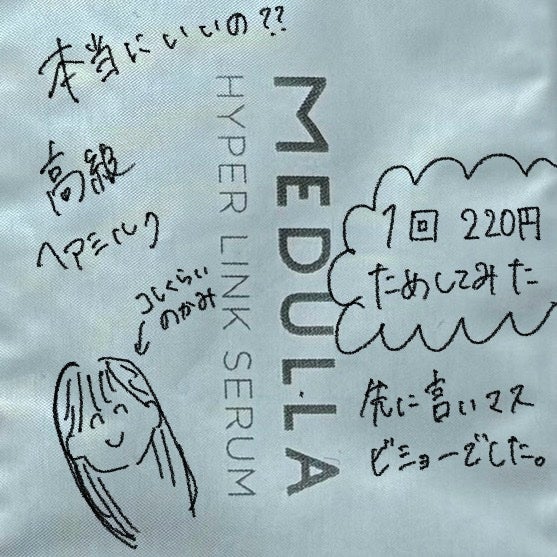 本当にいいの??
高級
ヘアミルク
コレくらい
のかみ
MEDULLA
HYPER LINK SERUM
1回 220円
ためしてみた
先に言いマス
ビミョーでした。